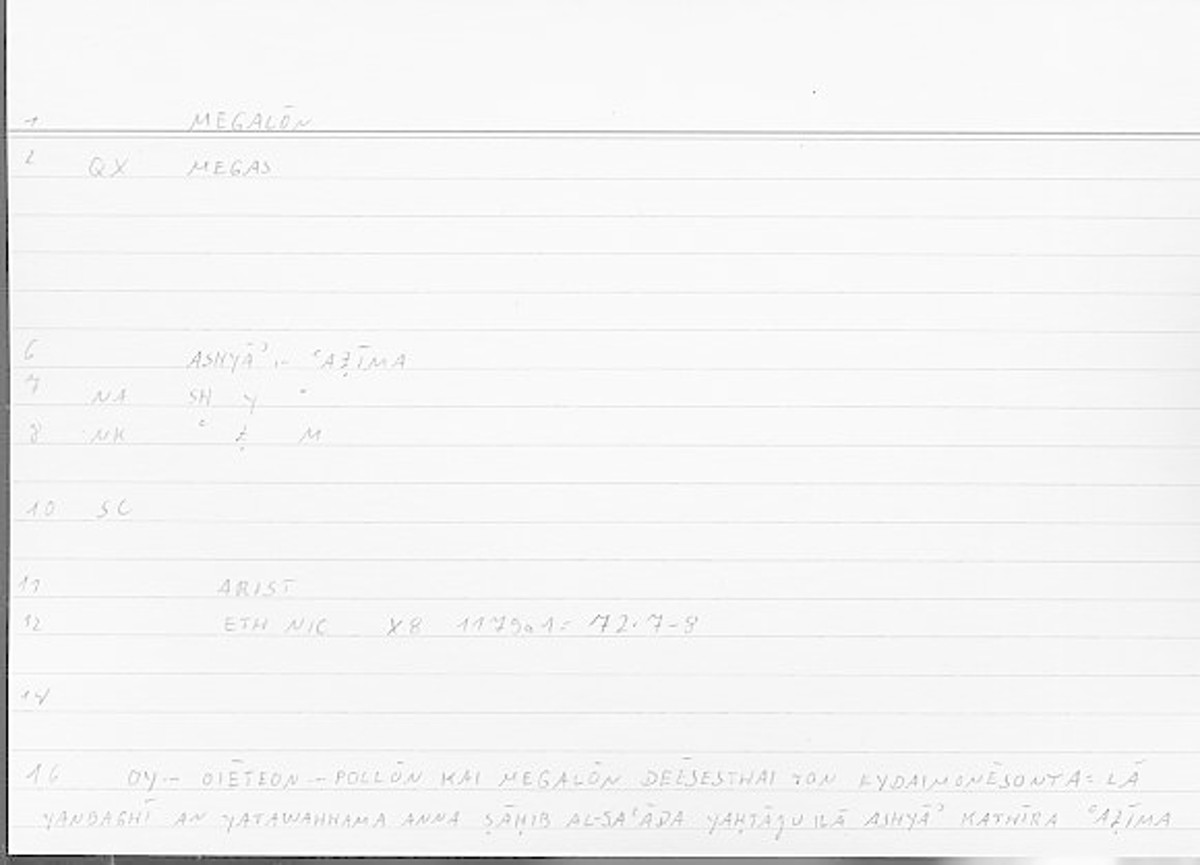 1 MEGALŌN
2 QX MEGAS
6 ASHYĀʾ .- ʿAẒĪMA
7 NA SH Y ʾ
8 NK ʿ Ẓ M
10 SC
11 ARIST
12 ETH NIC X8 1179a1= 72.7-8
14
16 OY.- OIĒTEON -POLLŌN KAI MEGALŌN DEĒSESTHAI TON EYDAIMONĒSONTA= LĀ
YANBAGHĪ AN YATAWAHHAMA ANNA ṢĀḤIB AL-SAʿĀDA YAḤTĀJU ILĀ ASHYĀʾ KATHĪRA ʿAẒĪMA